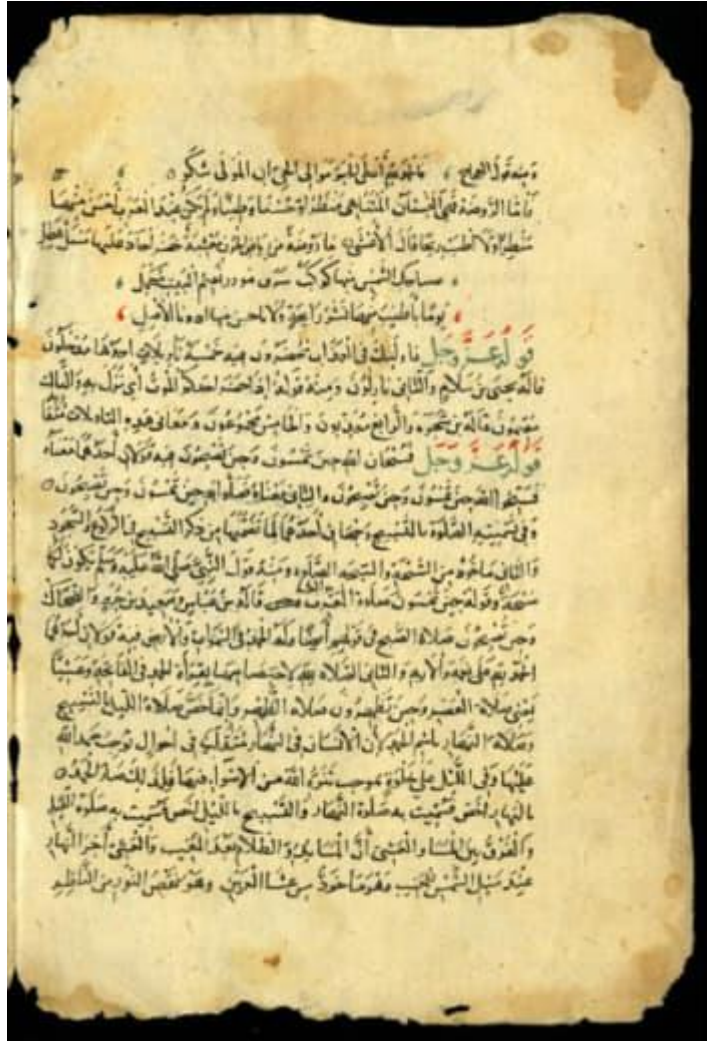 ومنه قول العجاج فالحمد لله الذي أعطى الحبر موالي الحق إن المولى شكر
فأما الروضة فهي البستان المتناهي منظرا وطيبا ولم يكن عند العرب أحسن منها
منظرا ولا أطيب ريحا قال الأعشى ما روضة من رياض الحزن معشبة خضراء جاد عليها مسبل هطل
يضاحك الشمس منها كوكب شرق مؤزر بعميم النبت مكتهل
يوما بأطيب منها نشر رائحة ولا بأحسن منها إذ دنا الأصل
قوله عز وجل فأولئك في العذاب محضرون فيه خمسة تأويلات أحدها مدخلون
قاله يحيى بن سلام والثاني نازلون ومنه قوله إذا حضر أحدكم الموت أي نزل به والثالث
مقيمون قاله بن شجرة والرابع معذبون والخامس مجموعون ومعاني هذه التأويلات
قوله عز وجل فسبحان الله حين تمسون وحين تصبحون فيه قولان أحدهما معناه
فسبحوا الله حين تمسون وحين تصبحون والثاني معناه فصلوا لله حين تمسون وحين تصبحون
وفي تسمية الصلوة بالتسبيح وجهان أحدهما لما تضمنها من ذكر التسبيح في الركوع والسجود
والثاني مأخوذ من السبحة والسبحة الصلوة ومنه قول النبي صلى الله عليه وسلم تكون لكم
سبحة وقوله حين تمسون صلاة المغرب قاله بن عباس وسعيد بن جبير والضحاك
وحين تصبحون صلاة الصبح في قولهم أيضا وله الحمد في السموات والأرض فيه قولان أحدهما
الحمد لله على نعمه وآلائه والثاني الصلاة لاختصاصها بقراءة الحمد في الفاتحة وعشيا
يعني صلاة العصر وحين تظهرون صلاة الظهر وإنما خص صلاة الليل بالتسبيح
وصلاة النهار باسم الحمد لأن الإنسان في النهار متقلب في أحوال توجب حمد الله
عليها وفي الليل على خلوة توجب تنزيه الله من الأسواء فيها فلذلك صار الحمد
بالنهار أخص فسميت به صلوة النهار والتسبيح بالليل أخص فسميت به صلوة الليل
والفرق بين المساء والعشي أن المساء بدو الظلام بعد المغيب والعشي آخر النهار
عند ميل الشمس للمغيب وهو مأخوذ من عشا العين وهو نقص النور من الناظر